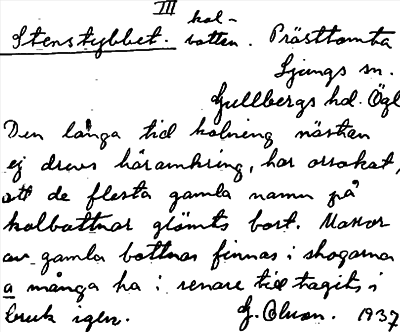 III kol-
Stenstybbet. botten. Prästtomta
Ljungs sn.
Gullbergs hd. Ögl
Den långa tid kolning nästan
ej drevs häromkring, har orsakat,
att de flesta gamla namn på
kolbottnar glömts bort. Massor
av gamla bottnar finnas i skogarna
a många ha i senare tid tagits i
bruk igen. G. Olson. 1937